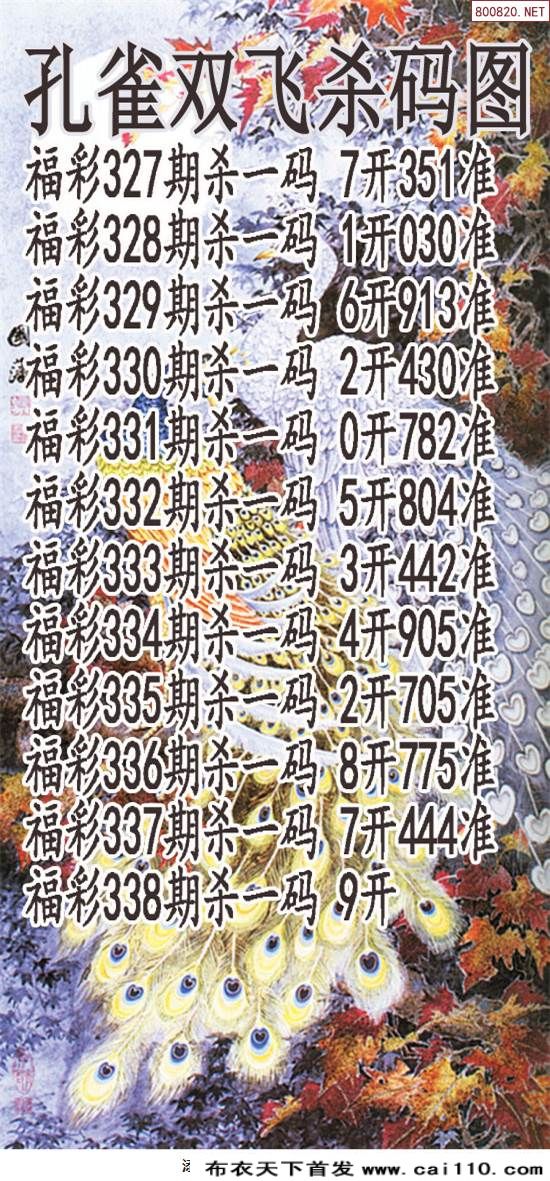 800820.NET
孔雀双飞杀码图
福彩327期杀一码 7开351准
福彩328期杀一码 1开030准
福彩329期杀一码 6开913准
福彩330期杀一码 2开430准
福彩331期杀一码 0开782准
福彩332期杀一码 5开804准
福彩333期杀一码 3开442准
福彩334期杀一码 4开905准
福彩335期杀一码 2开705准
福彩336期杀一码 8开775准
福彩337期杀一码 7开444准
福彩338期杀一码 9开
布衣天下首发 www.cai110.com